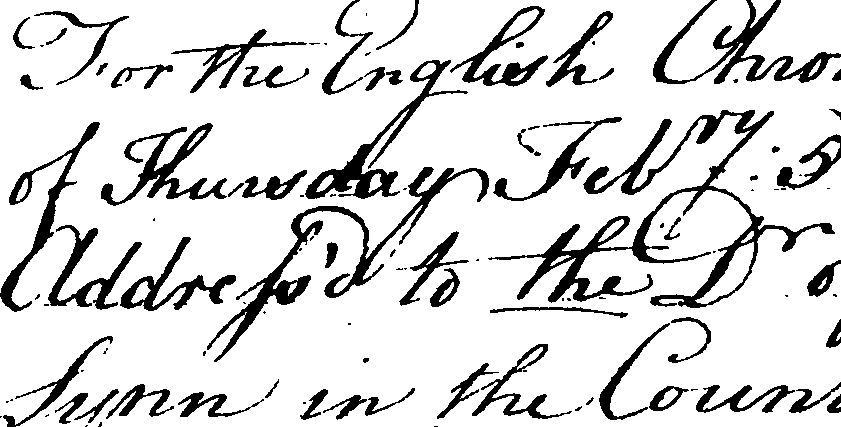 For the English Chro
of Thursday Feb^ry: 5
Address'd to the D^r o
Lynn in the Coun